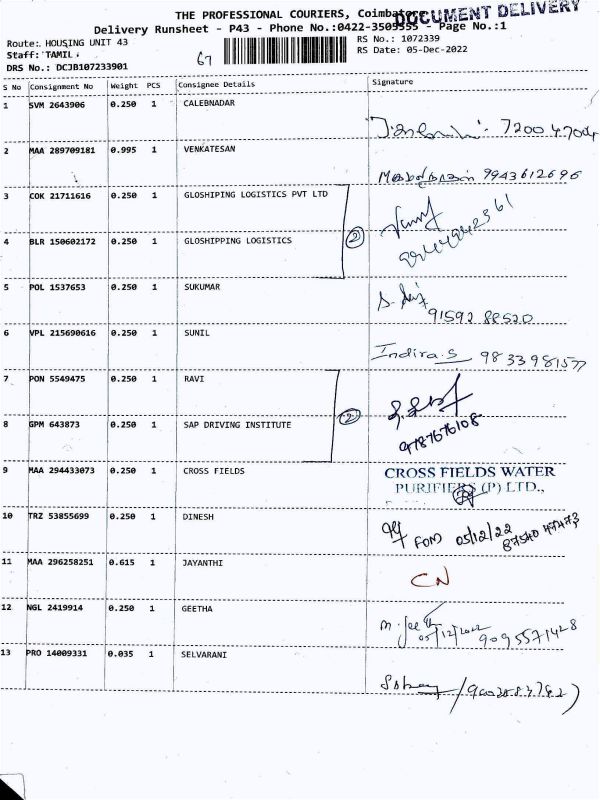 THE PROFESSIONAL COURIERS, Coimbatore
DOCUMENT DELIVERY
Delivery Runsheet - P43 - Phone No.:0422-3509555 - Page No.:1
Route:. HOUSING UNIT 43
RS No.: 1072339
Staff: TAMIL.
67
RS Date: 05-Dec-2022
DRS No.: DCJB107233901
S No Consignment No Weight PCS Consignee Details Signature
1 SVM 2643906 0.250 1 CALEBNADAR
720047004
2 MAA 289709181 0.995 1 VENKATESAN
9943612696
3 COK 21711616 0.250 1 GLOSHIPING LOGISTICS PVT LTD
4 BLR 150602172 0.250 1 GLOSHIPPING LOGISTICS
2
5 POL 1537653 0.250 1 SUKUMAR
91592 88520
6 VPL 215690616 0.250 1 SUNIL
Indira.S 9833981577
7 PON 5549475 0.250 1 RAVI
8 GPM 643873 0.250 1 SAP DRIVING INSTITUTE
2
9787676108
9 MAA 294433073 0.250 1 CROSS FIELDS
CROSS FIELDS WATER
PURIFIERS (P) LTD.,
10 TRZ 53855699 0.250 1 DINESH
FOM 05/12/22
87540 47473
11 MAA 296258251 0.615 1 JAYANTHI
CN
12 NGL 2419914 0.250 1 GEETHA
05/12/2022 9095571428
13 PRO 14009331 0.035 1 SELVARANI